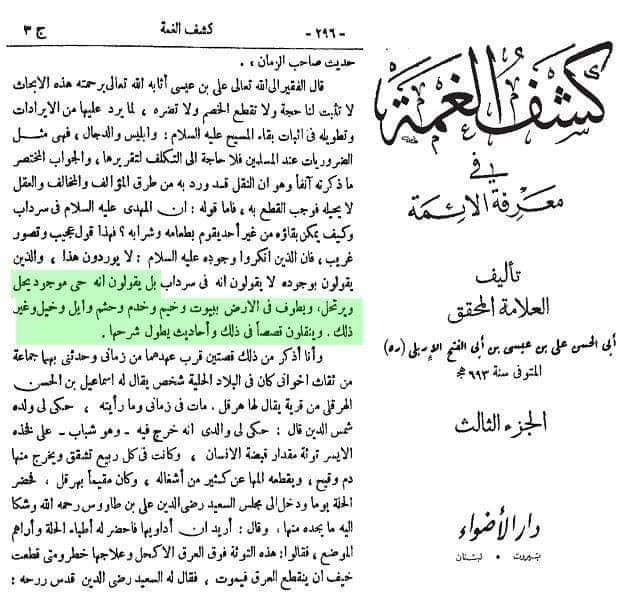 - ٢٩٦ - كشف الغمة ج ٣
حديث صاحب الزمان ، .
قال الفقير الى الله تعالى على بن عيسى أثابه الله تعالى برحمته هذه الابحاث
لا تثبت لنا حجة ولا تقطع الخصم ولا تضره ، لما يرد عليها من الايرادات
وتطويله فى اثبات بقاء المسيح عليه السلام : وابليس والدجال ، فهى مثل
الضروريات عند المسلمين فلا حاجة الى التكلف لتقريرها ، والجواب المختصر
ما ذكرته آنفاً وهو ان النقل قد ورد به من طرق المؤالف والمخالف والعقل
لا يحيله فوجب القطع به ، فاما قوله : ان المهدى عليه السلام فى سرداب
وكيف يمكن بقاؤه من غير أحد يقوم بطعامه وشرابه ؟ فهذا قول عجيب وتصور
غريب ، فان الذين انكروا وجوده عليه السلام : لا يوردون هذا ، والذين
يقولون بوجوده لا يقولون انه فى سرداب بل يقولون انه حى موجود يحل
ويرتحل ، ويطوف فى الارض ببيوت وخيم وخدم وحشم وأبل وخيل وغير
ذلك . وينقلون قصصاً فى ذلك وأحاديث يطول شرحها .
وأنا أذكر من ذلك قصتين قرب عهدهما من زمانى وحدثنى بهما جماعة
من ثقات اخوانى كان فى البلاد الحلية شخص يقال له اسماعيل بن الحسن
الهرقلى من قرية يقال لها هرقل . مات فى زمانى وما رأيته ، حكى لى ولده
شمس الدين قال : حكى لى والدى انه خرج فيه - وهو شباب - على فخذه
الايسر توثة مقدار قبضة الانسان ، وكانت فى كل ربيع تشقق ويخرج منها
دم وقيح ، ويقطعه المها عن كثير من أشغاله ، وكان مقيماً بهرقل ، فحضر
الحلة يوما ودخل الى مجلس السعيد رضى الدين على بن طاووس رحمه الله وشكا
اليه ما يجده منها ، وقال : أريد ان أداويها فاحضر له أطباء الحلة وأراهم
الموضع ، فقالوا : هذه التوثة فوق العرق الاكحل وعلاجها خطر ومتى قطعت
خيف ان ينقطع العرق فيموت ، فقال له السعيد رضى الدين قدس روحه :
كشف الغمة
في
معرفة الائمة
تأليف
العلامة المحقق
أبى الحسن على بن عيسى بن أبى الفتح الإربلى (ره)
المتوفى سنة ٦٩٣ هـ
الجزء الثالث
دار الأضواء
بيروت . لبنان